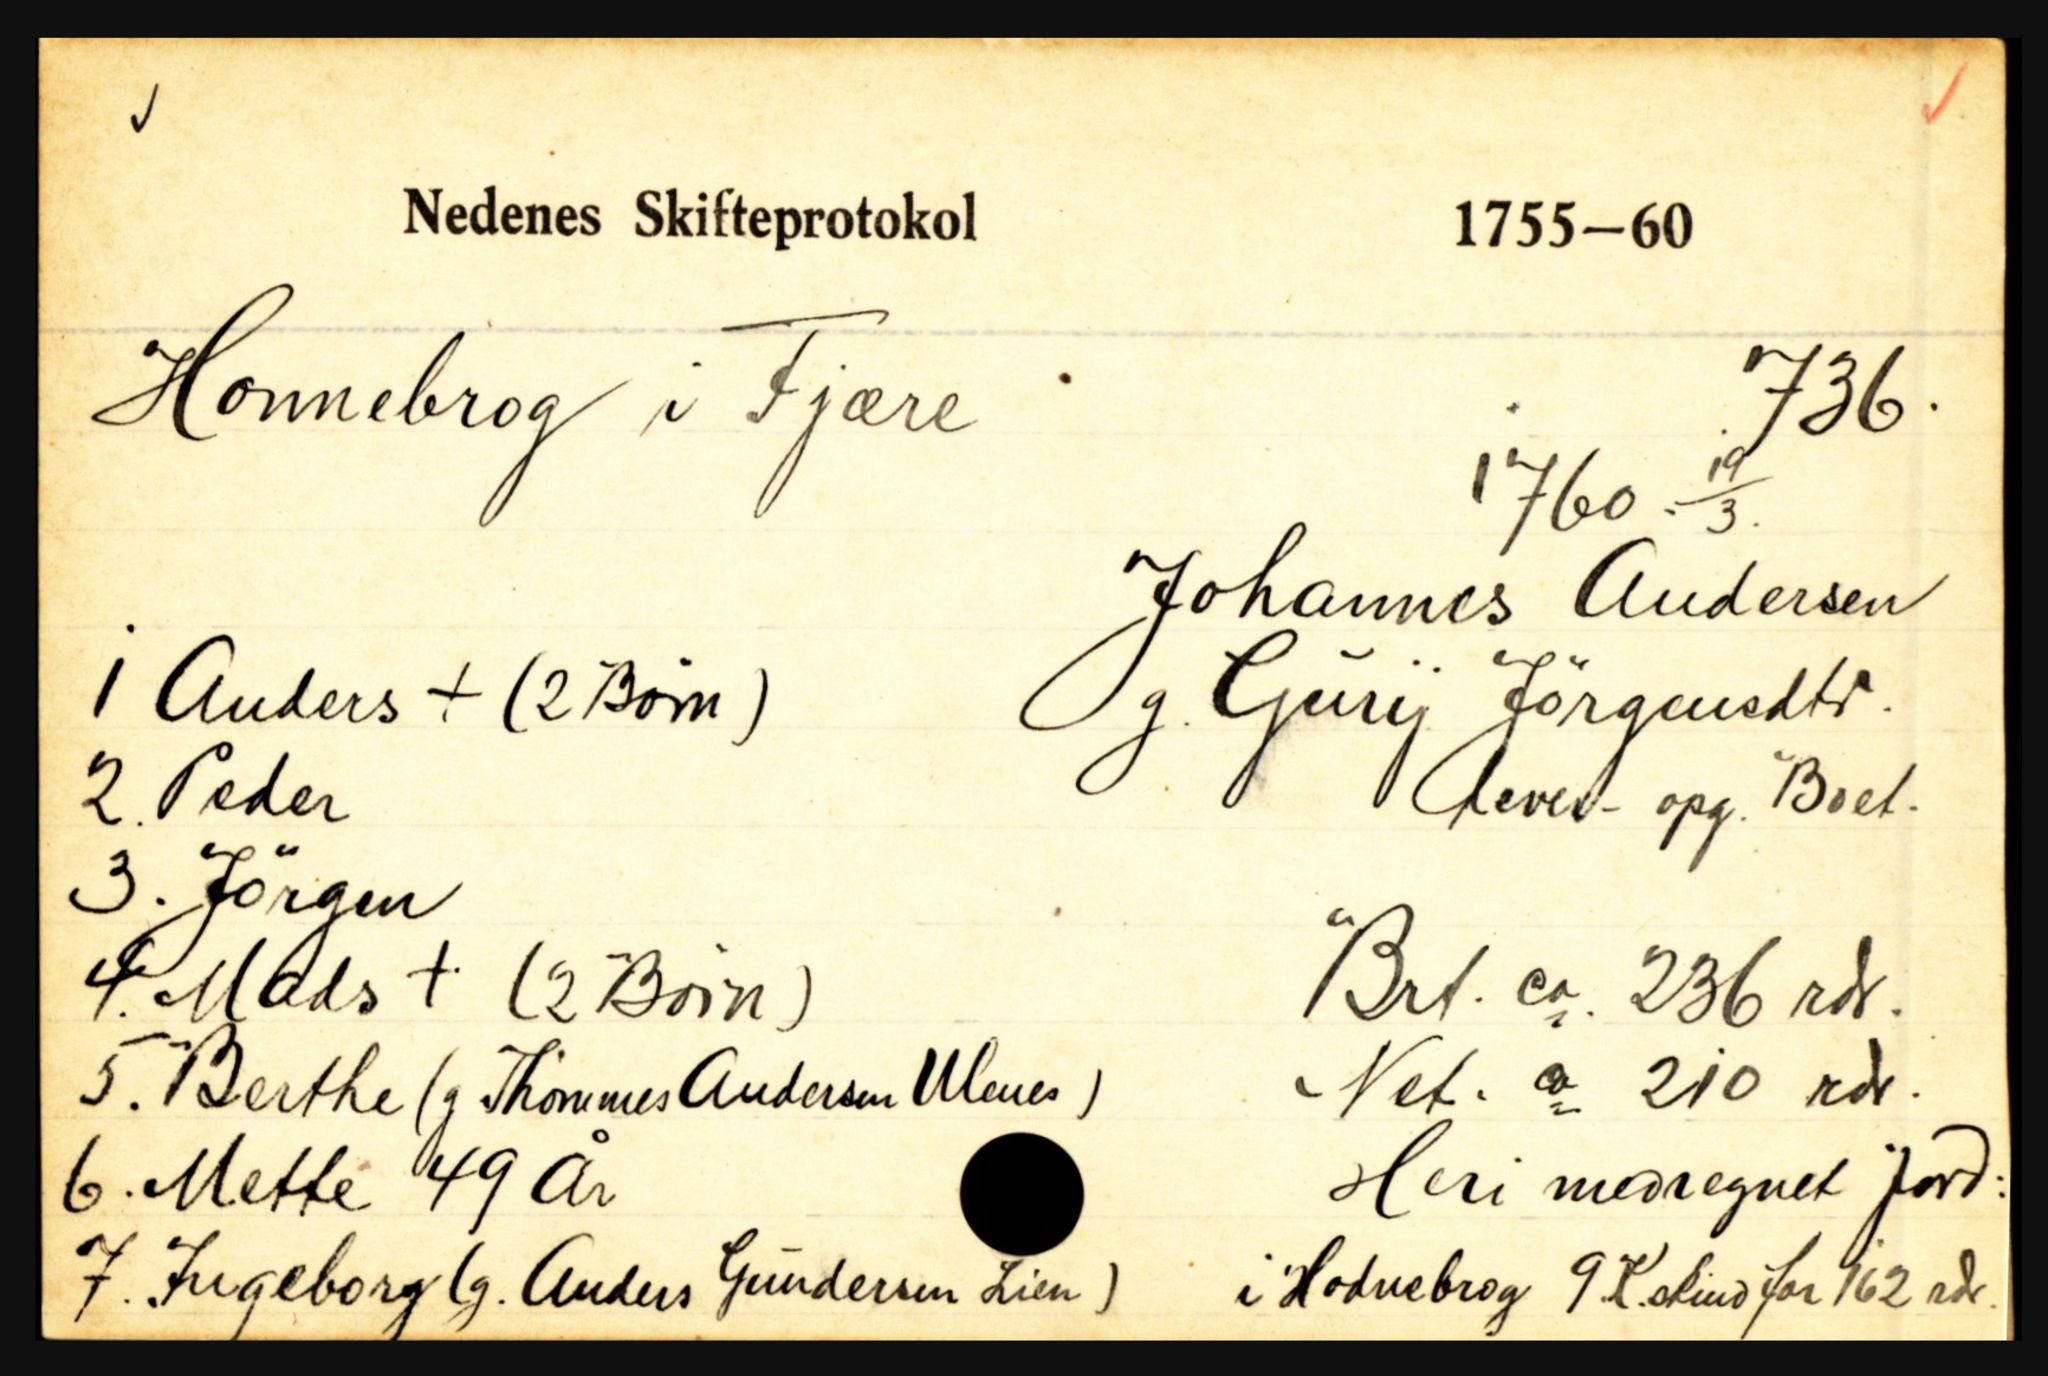 Nedenes Skifteprotokol 1755—60
Honnebrog i Fjære
736.
1760 - 19/3.
Johannes Andersen
g. Gurij Jörgensdtr.
Lever - opg. Boet.
1 Anders + (2 Börn)
2. Peder
3. Jörgen
4. Mads + (2 Börn)
5. Berthe (g Thommes Andersen Ulenes)
6. Mette 49 År
7. Ingeborg (g. Anders Gundersen Lien)
Brt. ca. 236 rdr.
Net. ca 210 rdr.
Heri medregnet jord:
i Hodnebrog 9 K.skind for 162 rdr.